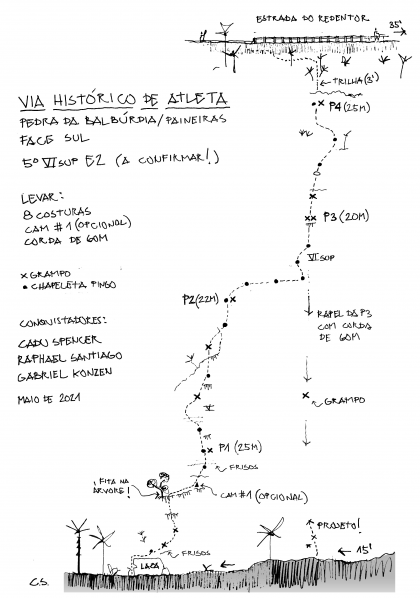 ESTRADA DO REDENTOR
35'
TRILHA (3')
VIA HISTÓRICO DE ATLETA
PEDRA DA BALBÚRDIA/PAINEIRAS
FACE SUL
5º VISUP E2 (A CONFIRMAR!)
P4 (25M)
LEVAR:
8 COSTURAS
CAM #1 (OPCIONAL)
CORDA DE 60M
P3 (20M)
VI SUP
× GRAMPO
• CHAPELETA PINGO
P2 (22M)
RAPEL DA P3
COM CORDA
DE 60M
CONQUISTADORES:
CADU SPENCER
RAPHAEL SANTIAGO
GABRIEL KONZEN
MAIO DE 2021
GRAMPO
V
P1 (25M)
FRISOS
¡FITA NA
ÁRVORE!
CAM #1 (OPCIONAL)
PROJETO!
FRISOS
15'
LACA
C.S.